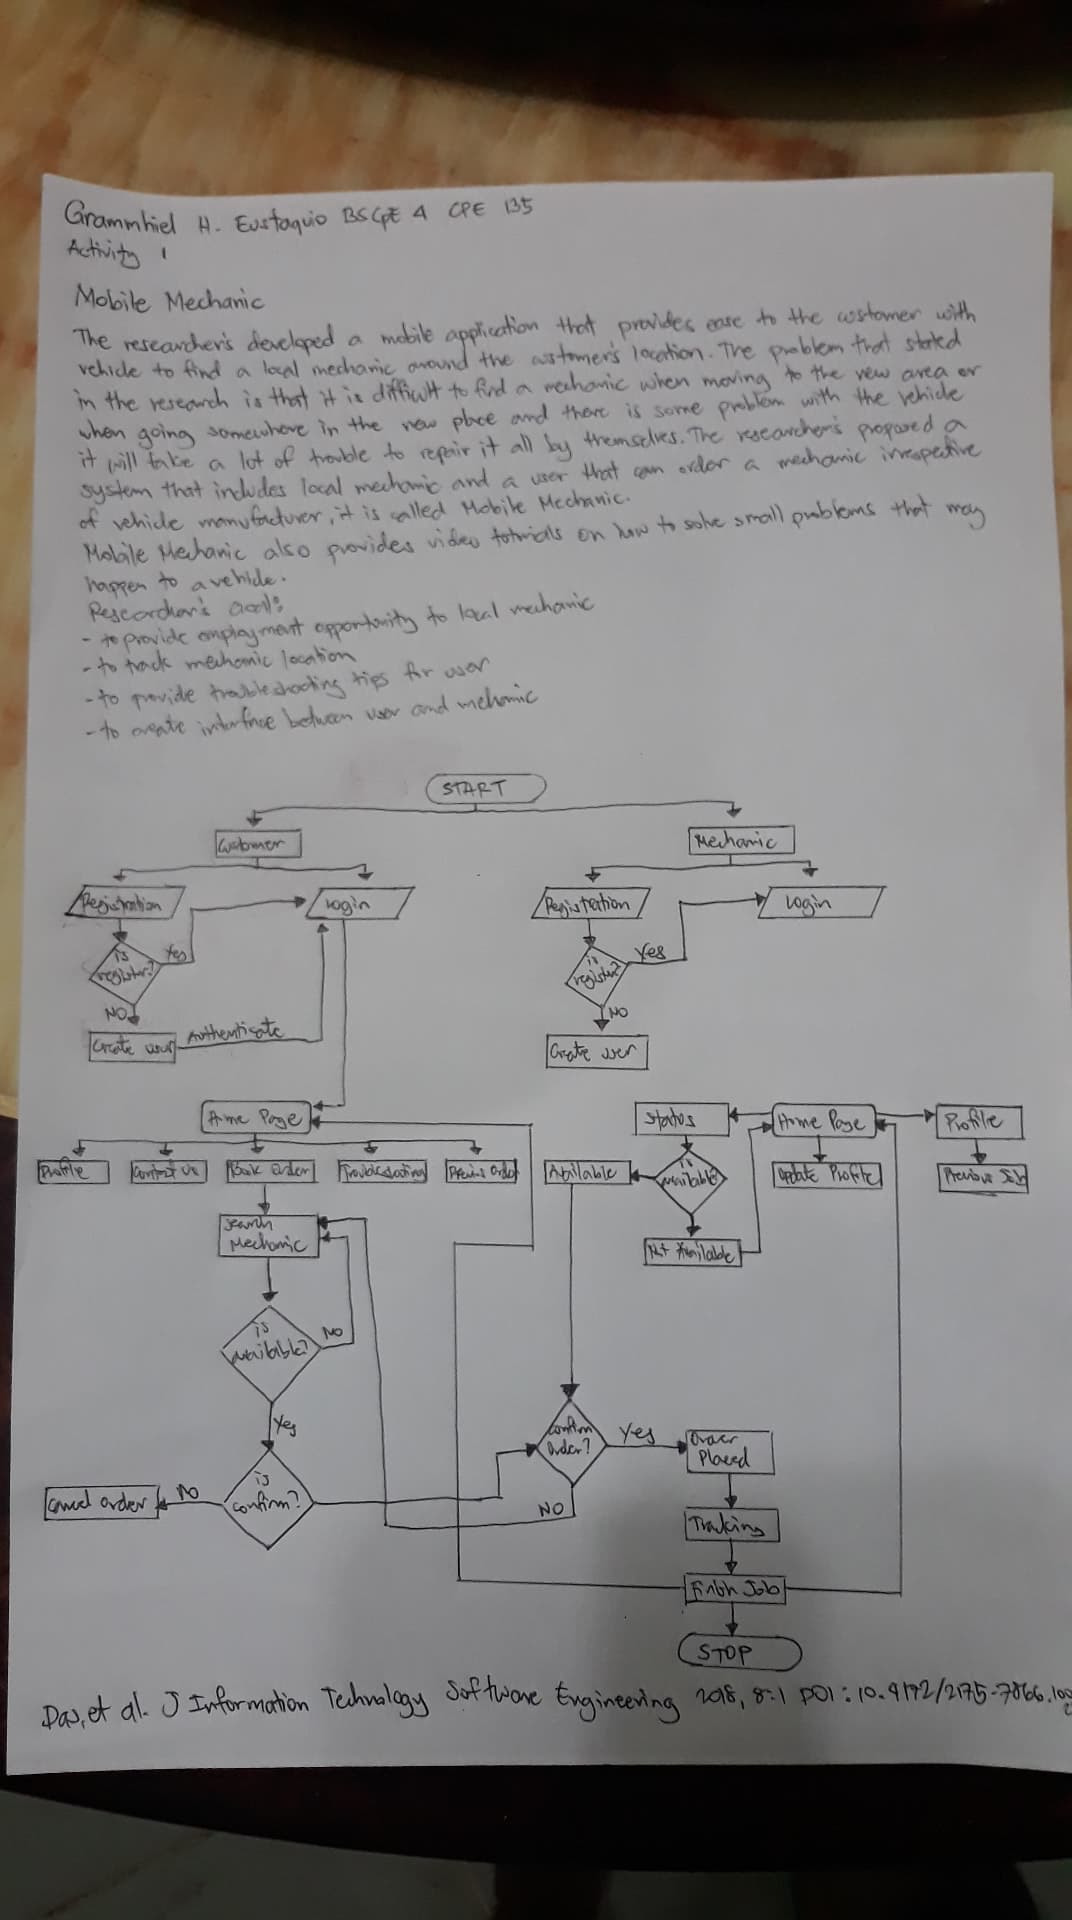 Grammhiel H. Eustaquio BSCpE 4 CPE 135
Activity 1
Mobile Mechanic
The researcher's developed a mobile application that provides ease to the customer with
vehicle to find a local mechanic around the customer's location. The problem that stated
in the research is that it is difficult to find a mechanic when moving to the new area or
when going somewhere in the new place and there is some problem with the vehicle
it will take a lot of trouble to repair it all by themselves. The researcher's proposed a
system that includes local mechanic and a user that can order a mechanic irrespective
of vehicle manufacturer, it is called Mobile Mechanic.
Mobile Mechanic also provides video tutorials on how to solve small problems that may
happen to a vehicle.
Researcher's Goal:
- to provide employment opportunity to local mechanic
- to track mechanic location
- to provide troubleshooting tips for user
- to create interface between user and mehanic
START
Customer
Mechanic
Registration
Login
Registration
Login
is register?
Yes
is register?
Yes
NO
NO
Create user
Authenticate
Create user
Home Page
Status
Home Page
Profile
Profile
Contact Us
Book Order
Troubleshooting
Previous Order
Available
is available?
Update Profile
Previous Job
Search
Mechanic
Not Available
is
available?
NO
Yes
Confirm
Order?
Yes
Order
Placed
Cancel order
NO
is
confirm?
NO
Tracking
Finish Job
STOP
Das, et al. J Information Technology Software Engineering 2018, 8:1 DOI: 10.4172/2175-7866.100